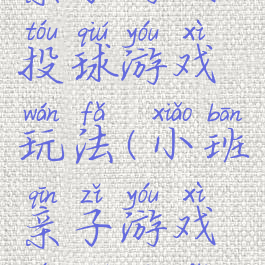 tóu qiú yóu xì
投球游戏
wán fǎ xiǎo bān
玩法(小班
qīn zǐ yóu xì
亲子游戏